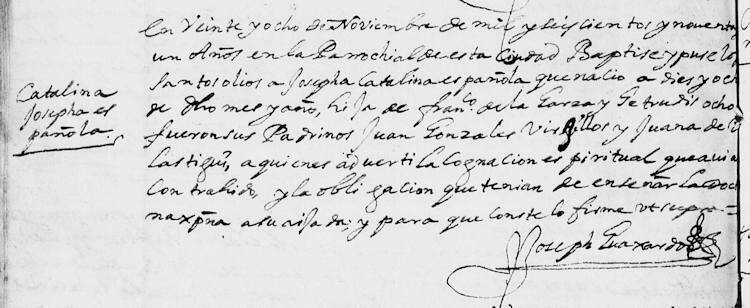 Catalina
Josepha es
pañola.
En Veinte y ocho de Noviembre de mil y seis cientos y noventa y
un Años en la Parrochial de esta Ciudad Baptise y puse los
santos olios a Josepha Catalina española que nacio a dies y ocho
de dho mes y año, hija de Franco. de la Garza y Getrudis ocho
fueron sus Padrinos Juan Gonzales y Juana de
a quienes adverti la cognacion espiritual que avian
contrahido, y la obligacion que tenian de enseñar la doc
na xpna a su aijada; y para que conste lo firme vt supra
Joseph Guaxardo